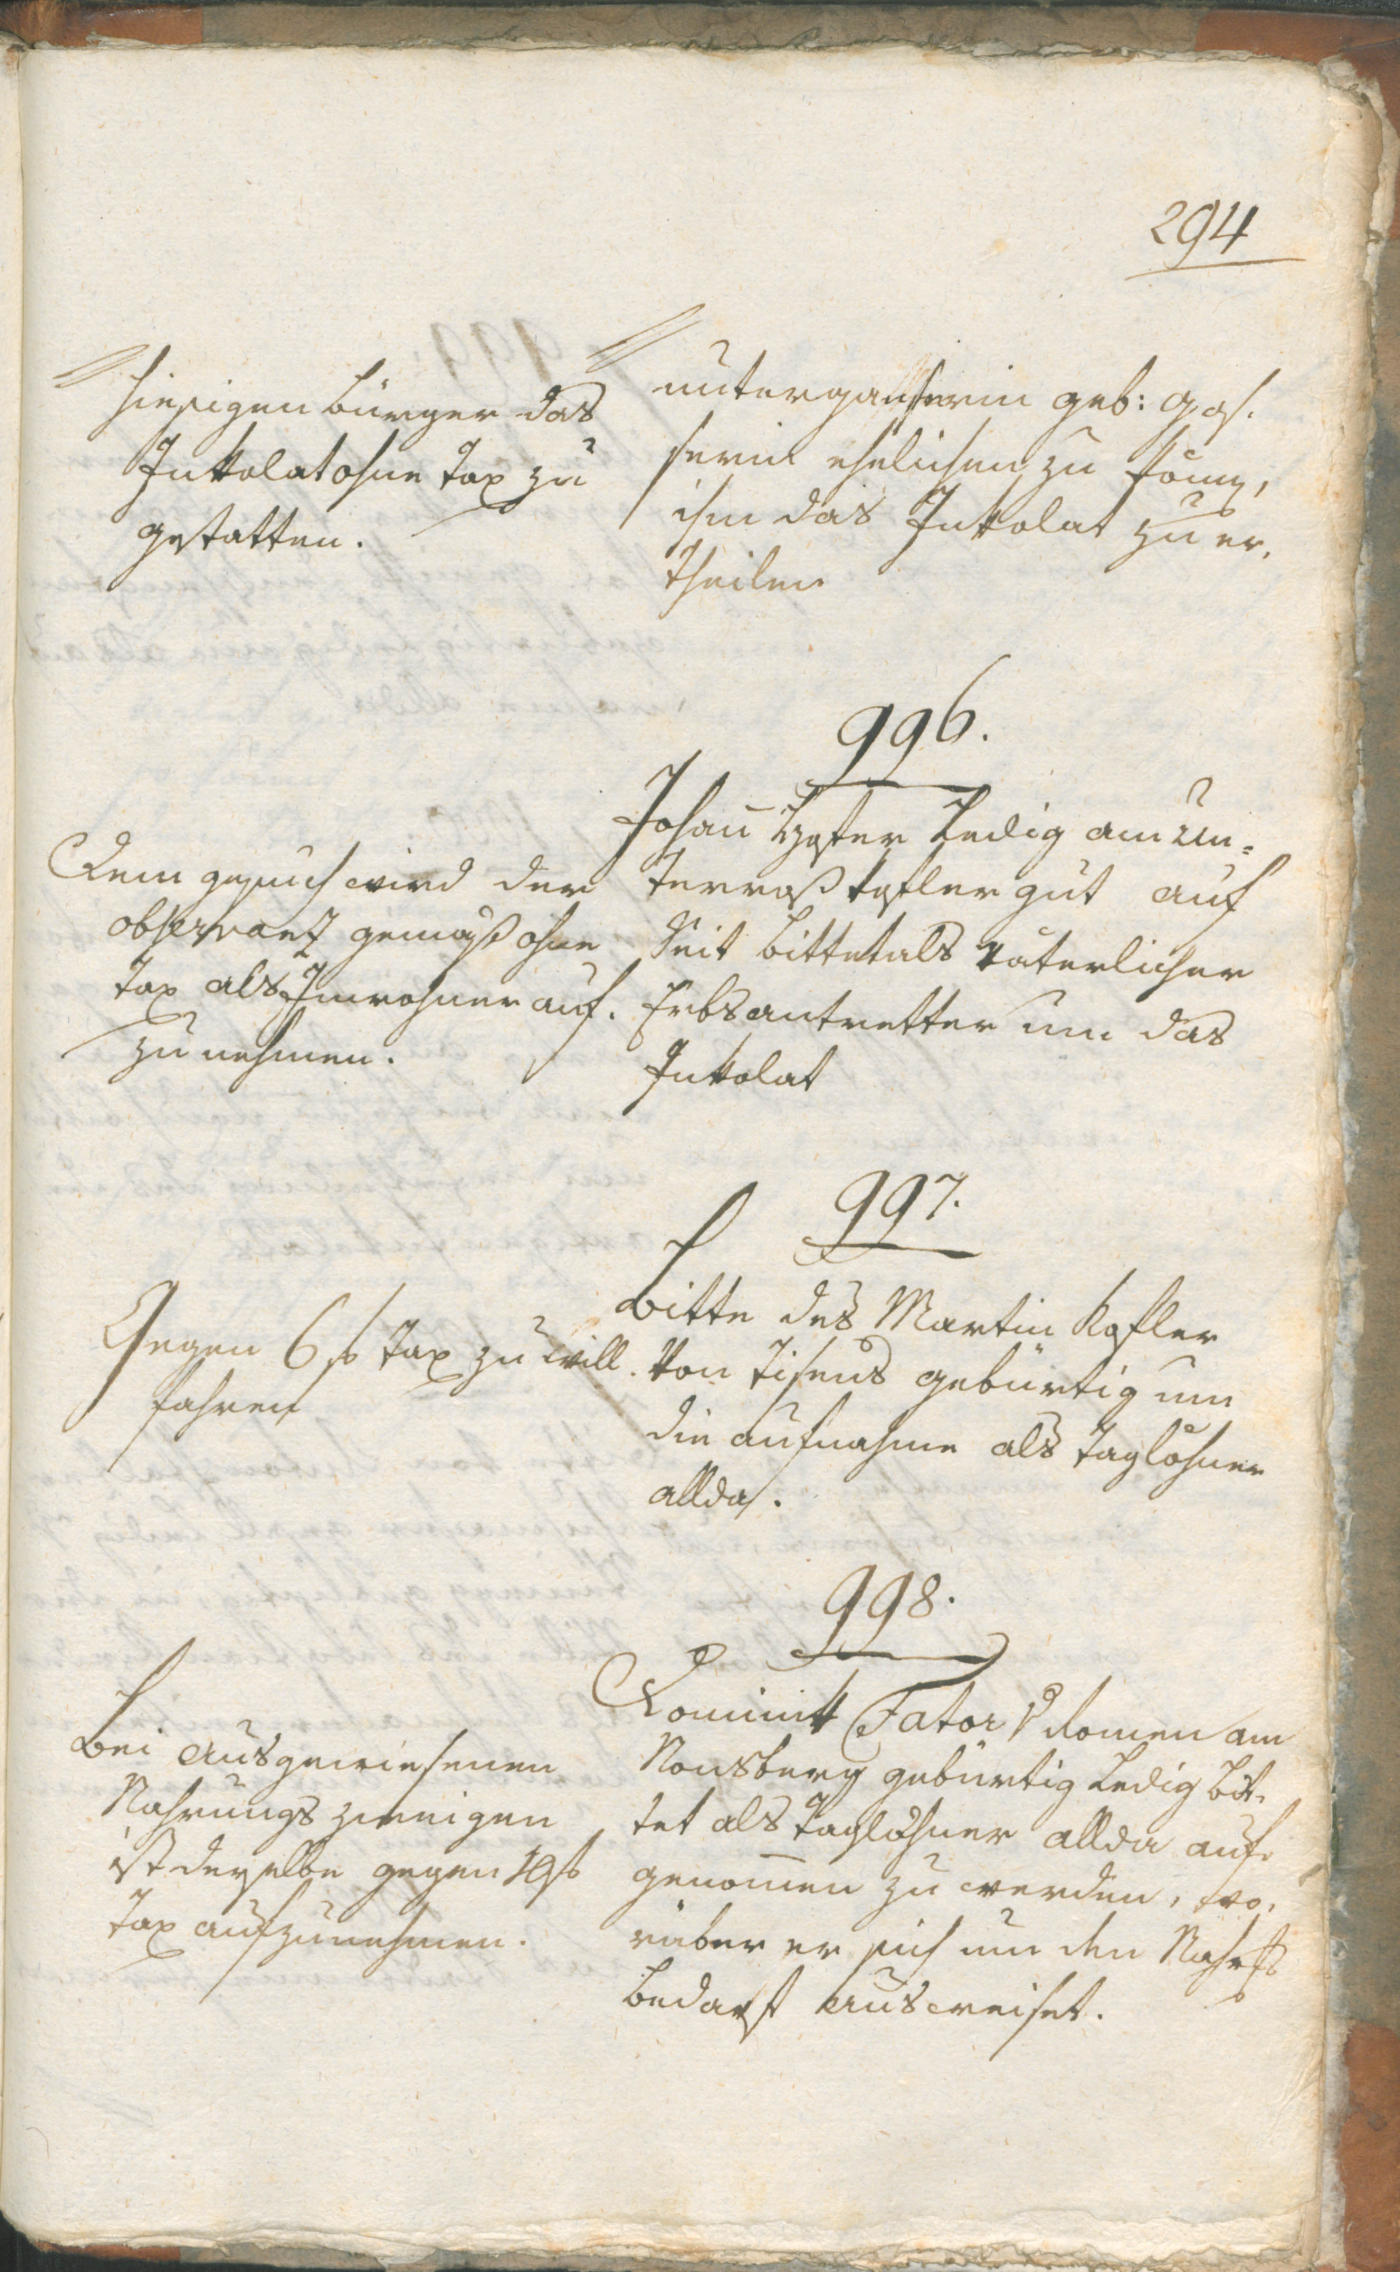 294
hiesigen Bürger das
Inkolat ohne Tax zu
gestatten.
untergasserin geb: Gas.
serin ehelichen zu könn,
ihm das Inkolat zu er,
theilen
996.
Johann Ledig am Un=
terroßkofler gut auf
Seit bittet als väterlicher
Erbsantretter um das
Inkolat
Dem gesuch wird der
observanz gemäß ohne
Tax als Inwohner auf.
zu nehmen.
997.
Bitte des Martin Kofler
von Tisens gebürtig um
die aufnahme als Taglöhner
allda.
Gegen 6 f Tax zu will.
fahren
998.
Dominik Fator v Romen am
Nonsberg gebürtig Ledig bit,
tet als Taglöhner allda auf,
genommen zu werden, wo,
rüber er sich um den Nahrgs
bedarf ausweiset.
Bei ausgewiesenen
Nahrungs zweigen
ist derselbe gegen 10 f
Tax aufzunehmen.